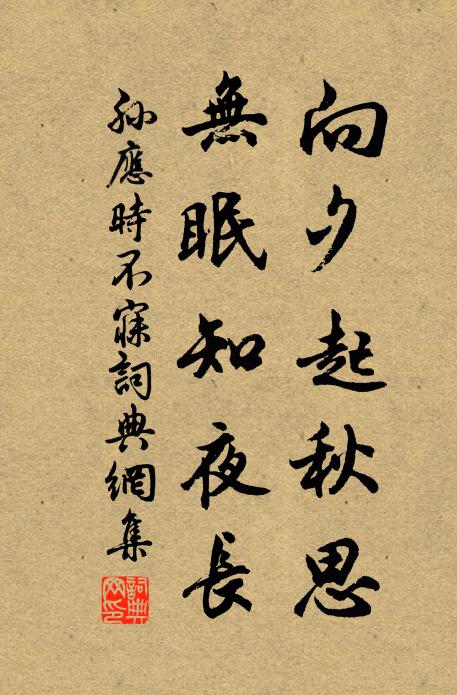 向夕起秋思
無眠知夜長
孫應時不寐詞典網集
詞典網印